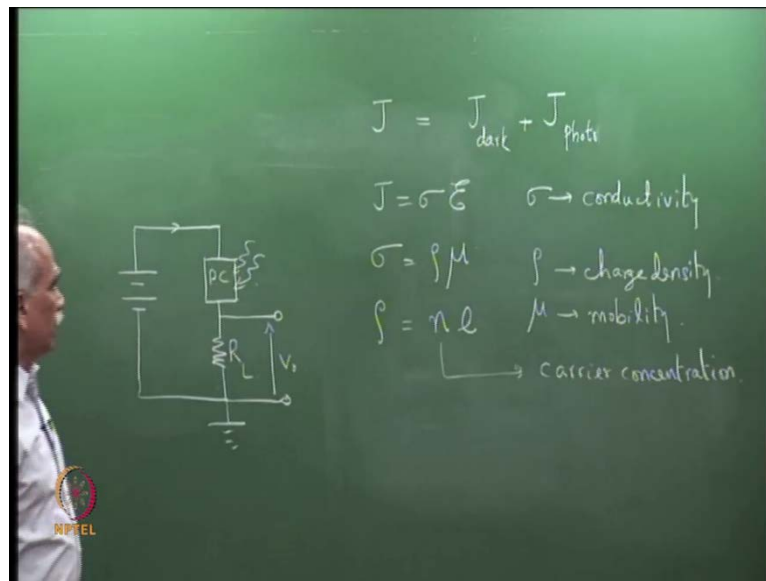 J = J dark + J photo
J = σ Ē σ → conductivity
σ = ρ μ ρ → charge density.
ρ = n e μ → mobility.
→ carrier concentration.
PC
R L
V₀
NPTEL